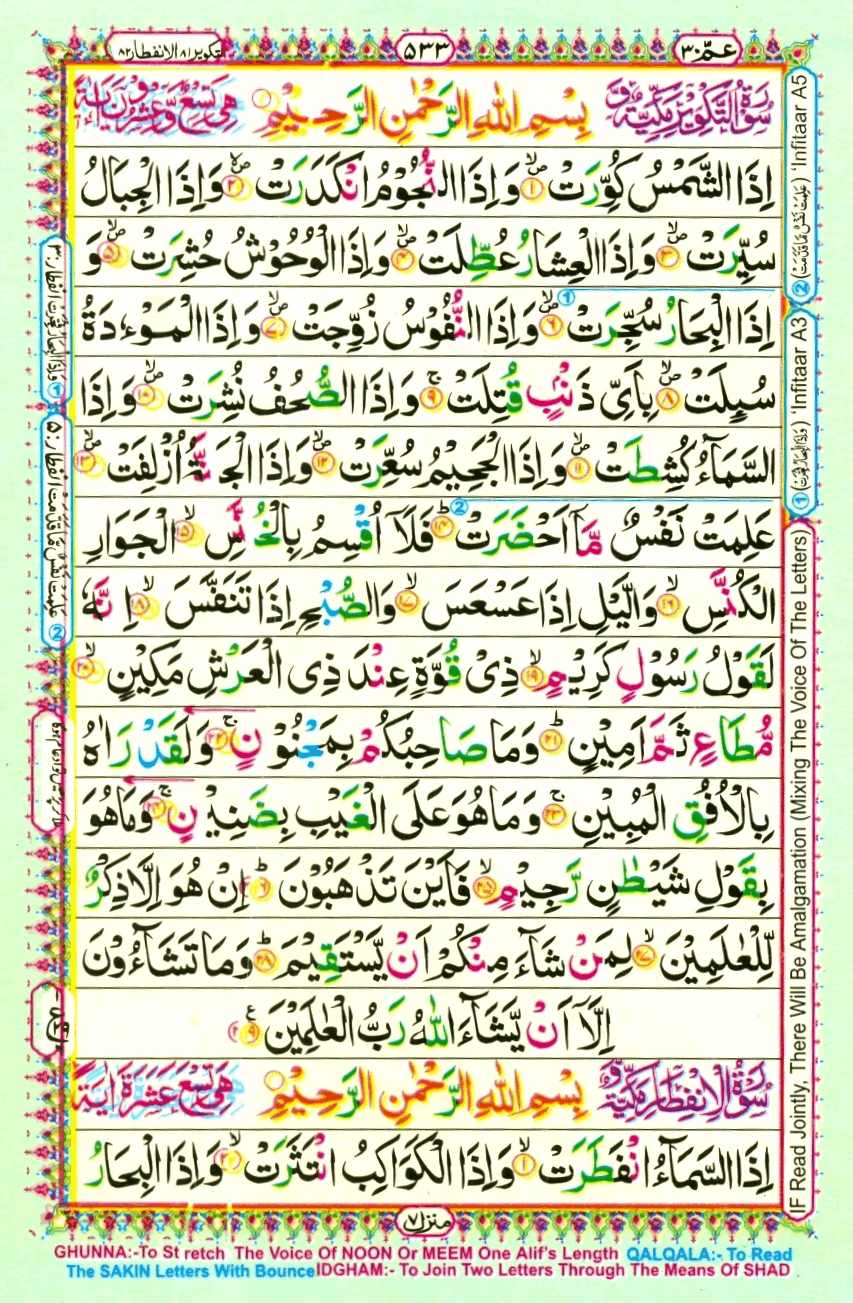 التكوير ٨١ الانفطار ٨٢
٥٣٣
عمّ ٣٠
سُوْرَةُ التَّكْوِيْرِ مَكِّيَّةٌ وَّ بِسْمِ اللهِ الرَّحْمٰنِ الرَّحِيْمِ هِيَ تِسْعٌ وَّعِشْرُوْنَ اٰيَةً
اِذَا الشَّمْسُ كُوِّرَتْ ۙ۱ وَاِذَا النُّجُوْمُ انْكَدَرَتْ ۙ۲ وَاِذَا الْجِبَالُ
سُيِّرَتْ ۙ۳ وَاِذَا الْعِشَارُ عُطِّلَتْ ۙ۴ وَاِذَا الْوُحُوْشُ حُشِرَتْ ۙ۵ وَ
اِذَا الْبِحَارُ سُجِّرَتْ ۙ۶ وَاِذَا النُّفُوْسُ زُوِّجَتْ ۙ۷ وَاِذَا الْمَوْءٗدَةُ
سُىِٕلَتْ ۙ۸ بِاَىِّ ذَنْۢبٍ قُتِلَتْ ۚ۹ وَاِذَا الصُّحُفُ نُشِرَتْ ۙ۱۰ وَاِذَا
السَّمَآءُ كُشِطَتْ ۙ۱۱ وَاِذَا الْجَحِيْمُ سُعِّرَتْ ۙ۱۲ وَاِذَا الْجَنَّةُ اُزْلِفَتْ ۙ۱۳
عَلِمَتْ نَفْسٌ مَّاۤ اَحْضَرَتْ ؕ۱۴ فَلَاۤ اُقْسِمُ بِالْخُنَّسِ ۙ۱۵ الْجَوَارِ
الْكُنَّسِ ۙ۱۶ وَالَّيْلِ اِذَا عَسْعَسَ ۙ۱۷ وَالصُّبْحِ اِذَا تَنَفَّسَ ۙ۱۸ اِنَّهٗ
لَقَوْلُ رَسُوْلٍ كَرِيْمٍ ۙ۱۹ ذِىْ قُوَّةٍ عِنْدَ ذِى الْعَرْشِ مَكِيْنٍ ۙ۲۰
مُّطَاعٍ ثَمَّ اَمِيْنٍ ؕ۲۱ وَمَا صَاحِبُكُمْ بِمَجْنُوْنٍ ۚ۲۲ وَلَقَدْ رَاٰهُ
بِالْاُفُقِ الْمُبِيْنِ ۚ۲۳ وَمَا هُوَ عَلَى الْغَيْبِ بِضَنِيْنٍ ۚ۲۴ وَمَا هُوَ
بِقَوْلِ شَيْطٰنٍ رَّجِيْمٍ ۙ۲۵ فَاَيْنَ تَذْهَبُوْنَ ؕ۲۶ اِنْ هُوَ اِلَّا ذِكْرٌ
لِّلْعٰلَمِيْنَ ۙ۲۷ لِمَنْ شَآءَ مِنْكُمْ اَنْ يَّسْتَقِيْمَ ؕ۲۸ وَمَا تَشَآءُوْنَ
اِلَّاۤ اَنْ يَّشَآءَ اللهُ رَبُّ الْعٰلَمِيْنَ ۲۹ ع
سُوْرَةُ الْاِنْفِطَارِ مَكِّيَّةٌ وَّ بِسْمِ اللهِ الرَّحْمٰنِ الرَّحِيْمِ هِيَ تِسْعَ عَشَرَةَ اٰيَةً
اِذَا السَّمَآءُ انْفَطَرَتْ ۙ۱ وَاِذَا الْكَوَاكِبُ انْتَثَرَتْ ۙ۲ وَاِذَا الْبِحَارُ
منزل ٧
IF Read Jointly, There Will Be Amalgamation (Mixing The Voice Of The Letters) ① (وَاِذَا الْبِحَارُ فُجِّرَتْ) 'Infitaar A3 ② (عَلِمَتْ نَفْسٌ مَّا قَدَّمَتْ) 'Infitaar A5
① وَاِذَا الْبِحَارُ فُجِّرَتْ انفطار : ٣
② عَلِمَتْ نَفْسٌ مَّا قَدَّمَتْ انفطار : ٥
GHUNNA:-To St retch The Voice Of NOON Or MEEM One Alif's Length QALQALA:- To Read
The SAKIN Letters With Bounce IDGHAM:- To Join Two Letters Through The Means Of SHAD